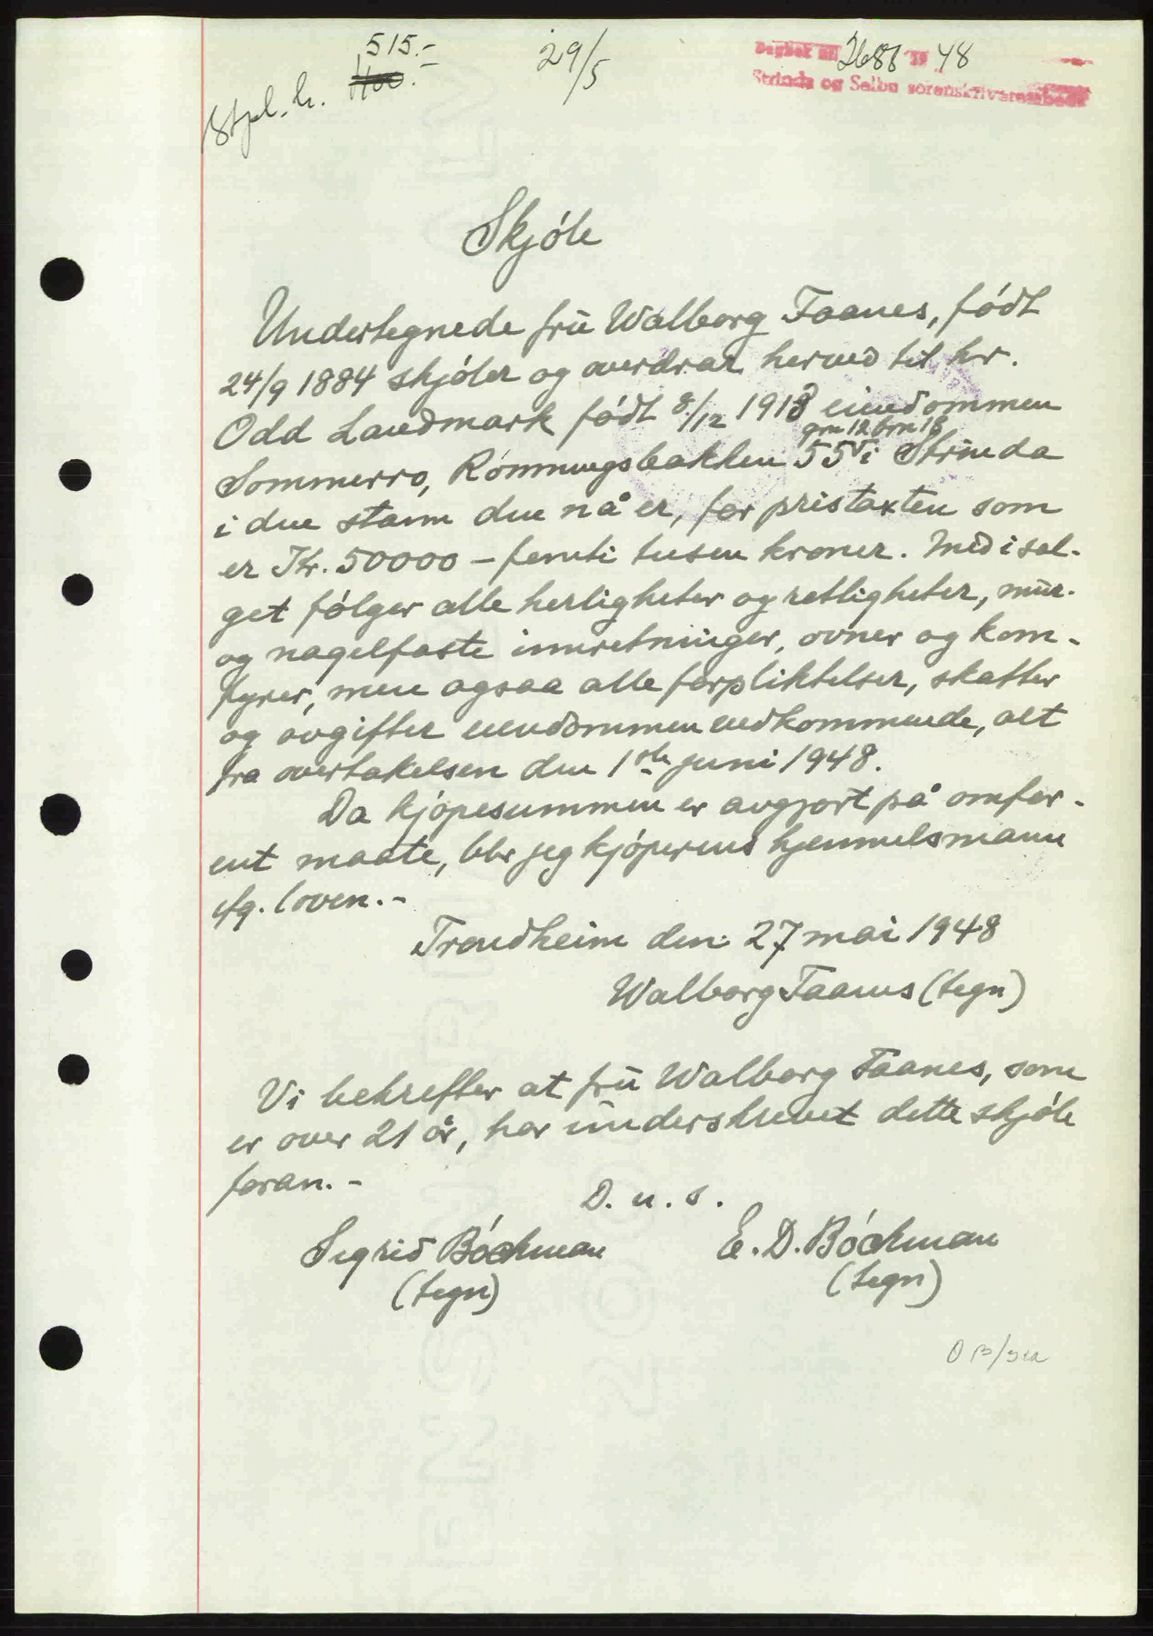 515.-
29/5
Dagbok nr. 2688 19 48
Strinda og Selbu sorenskriverembede
Stpl. kr.
Skjöte
Undertegnede frü Walborg Faanes, födt
24/9 1884 skjöter og overdrar herved til hr.
Odd Landmark födt 8/12 1918 eiendommen
gnr 12 bnr 18
Sommerro, Rönningsbakken 55 i Strinda
i den stann den nå er, for pristaxten som
er Kr. 50000 - femti tusen kroner. Med i sal-
get fölger alle herligheter og rettigheter, mür-
og nagelfaste innretninger, ovner og kom-
fyrer, men ogsaa alle forpliktelser, skatter
og avgifter eiendommen vedkommende, alt
fra overtakelsen den 1ste juni 1948.
Da kjöpesummen er avgjort på omfor-
ent maate, blir jeg kjöperens hjemmelsmann
efg. loven.-
Trondheim den 27 mai 1948
Walborg Faanes (tegn)
Vi bekrefter at frü Walborg Faanes, som
er over 21 år, har ünderskrevet dette skjöte
foran.-
D. u. s.
Sigrid Böckman E. D. Böckman
(tegn) (tegn)